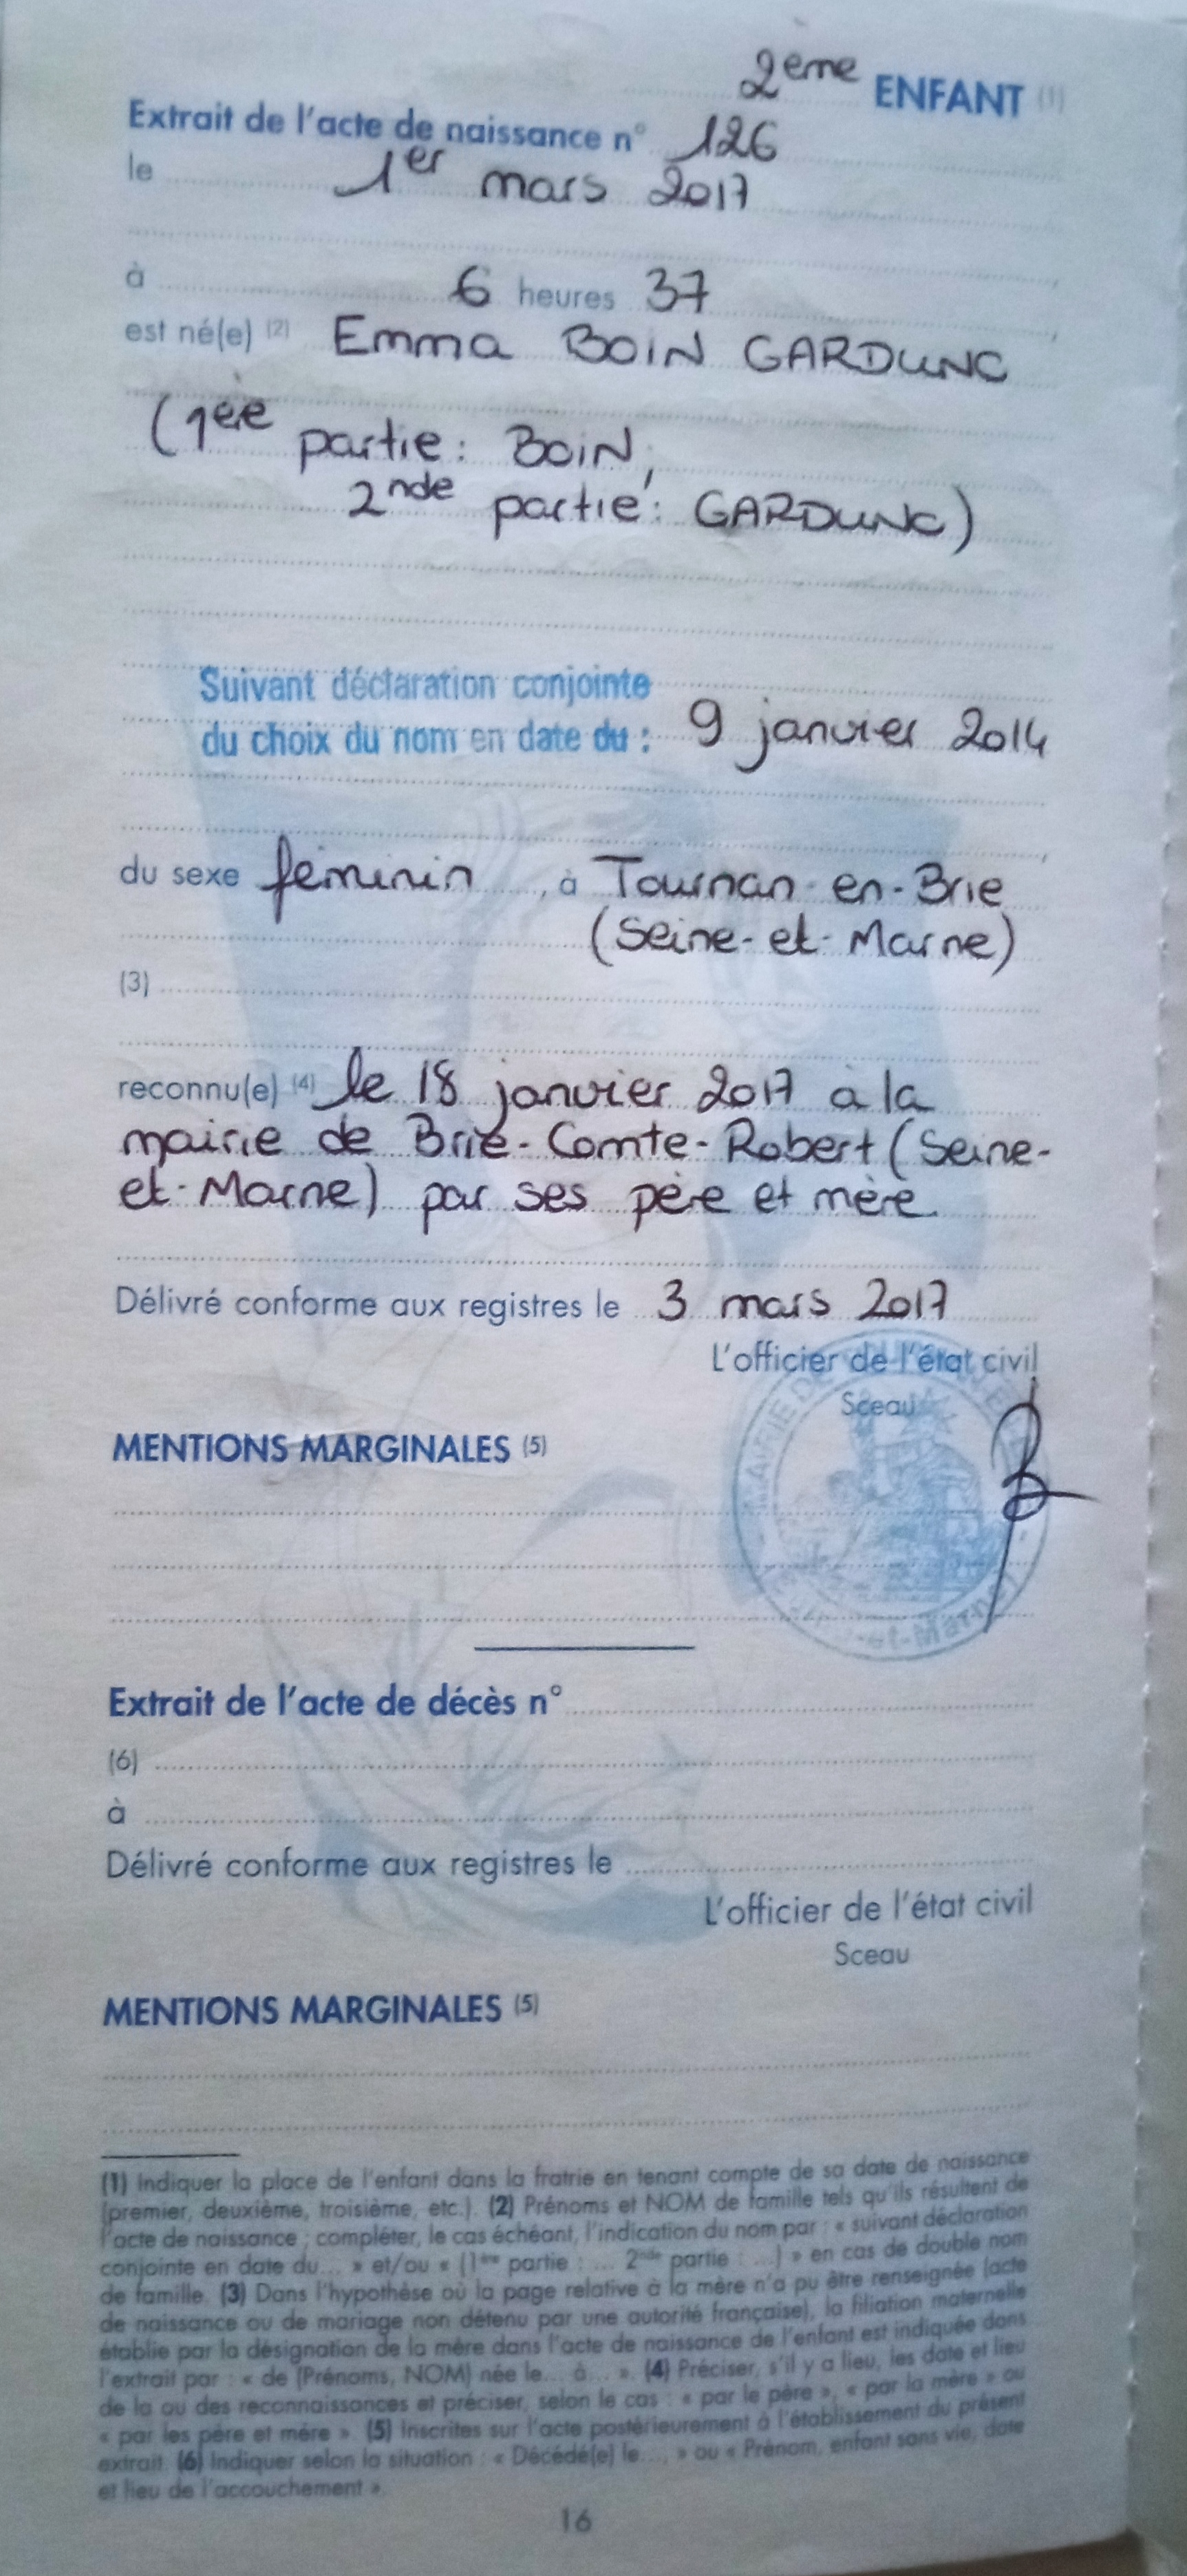 2ème ENFANT (1)
Extrait de l'acte de naissance n° 126
le 1er mars 2017
à 6 heures 37
est né(e) (2) Emma BOIN GARDUNO
(1ère partie : BOIN,
2nde partie : GARDUNO)
Suivant déclaration conjointe
du choix du nom en date du : 9 janvier 2014
du sexe féminin, à Tournan-en-Brie
(Seine-et-Marne)
(3)
reconnu(e) (4) le 18 janvier 2017 à la
mairie de Brie-Comte-Robert (Seine-
et-Marne) par ses père et mère.
Délivré conforme aux registres le 3 mars 2017
L'officier de l'état civil
Sceau
MAIRIE DE
et-Marne
MENTIONS MARGINALES (5)
Extrait de l'acte de décès n°
(6)
à
Délivré conforme aux registres le
L'officier de l'état civil
Sceau
MENTIONS MARGINALES (5)
(1) Indiquer la place de l'enfant dans la fratrie en tenant compte de sa date de naissance
(premier, deuxième, troisième, etc.). (2) Prénoms et NOM de famille tels qu'ils résultent de
l'acte de naissance ; compléter, le cas échéant, l'indication du nom par : « suivant déclaration
conjointe en date du... » et/ou « (1ère partie : ... 2nde partie : ...) » en cas de double nom
de famille. (3) Dans l'hypothèse où la page relative à la mère n'a pu être renseignée (acte
de naissance ou de mariage non détenu par une autorité française), la filiation maternelle
établie par la désignation de la mère dans l'acte de naissance de l'enfant est indiquée dans
l'extrait par : « de (Prénoms, NOM) née le... à... ». (4) Préciser, s'il y a lieu, les date et lieu
de la ou des reconnaissances et préciser, selon le cas : « par le père », « par la mère » ou
« par les père et mère ». (5) Inscrites sur l'acte postérieurement à l'établissement du présent
extrait. (6) Indiquer selon la situation : « Décédé(e) le.... » ou « Prénom, enfant sans vie, date
et lieu de l'accouchement ».
16